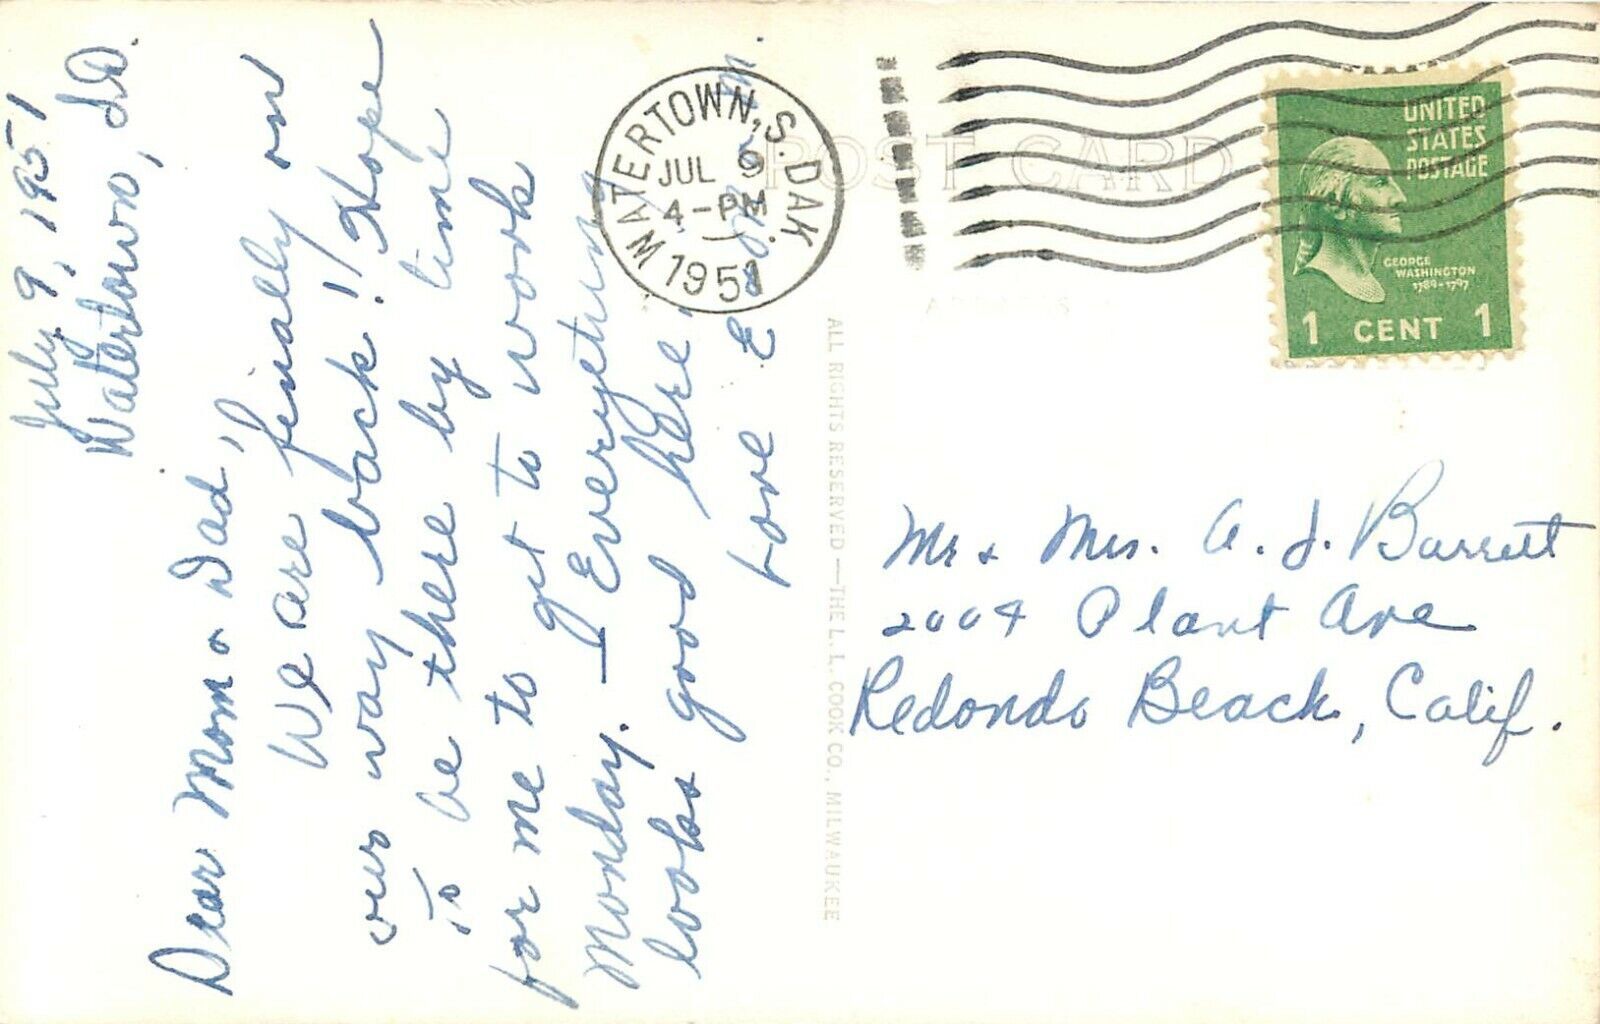 July 9, 1951
Watertown, SD.
Dear Mom & Dad,
We are finally on
our way back!! Hope
to be there by time
for me to get to work
Monday. — Everything
looks good here,
Love E
WATERTOWN, S. DAK.
JUL 9
4-PM
1951
POST CARD
ADDRESS
UNITED
STATES
POSTAGE
GEORGE
WASHINGTON
1789-1797
1 CENT 1
ALL RIGHTS RESERVED—THE L. L. COOK CO., MILWAUKEE
Mr & Mrs. A. J. Barrett
2004 Plant Ave
Redondo Beach, Calif.